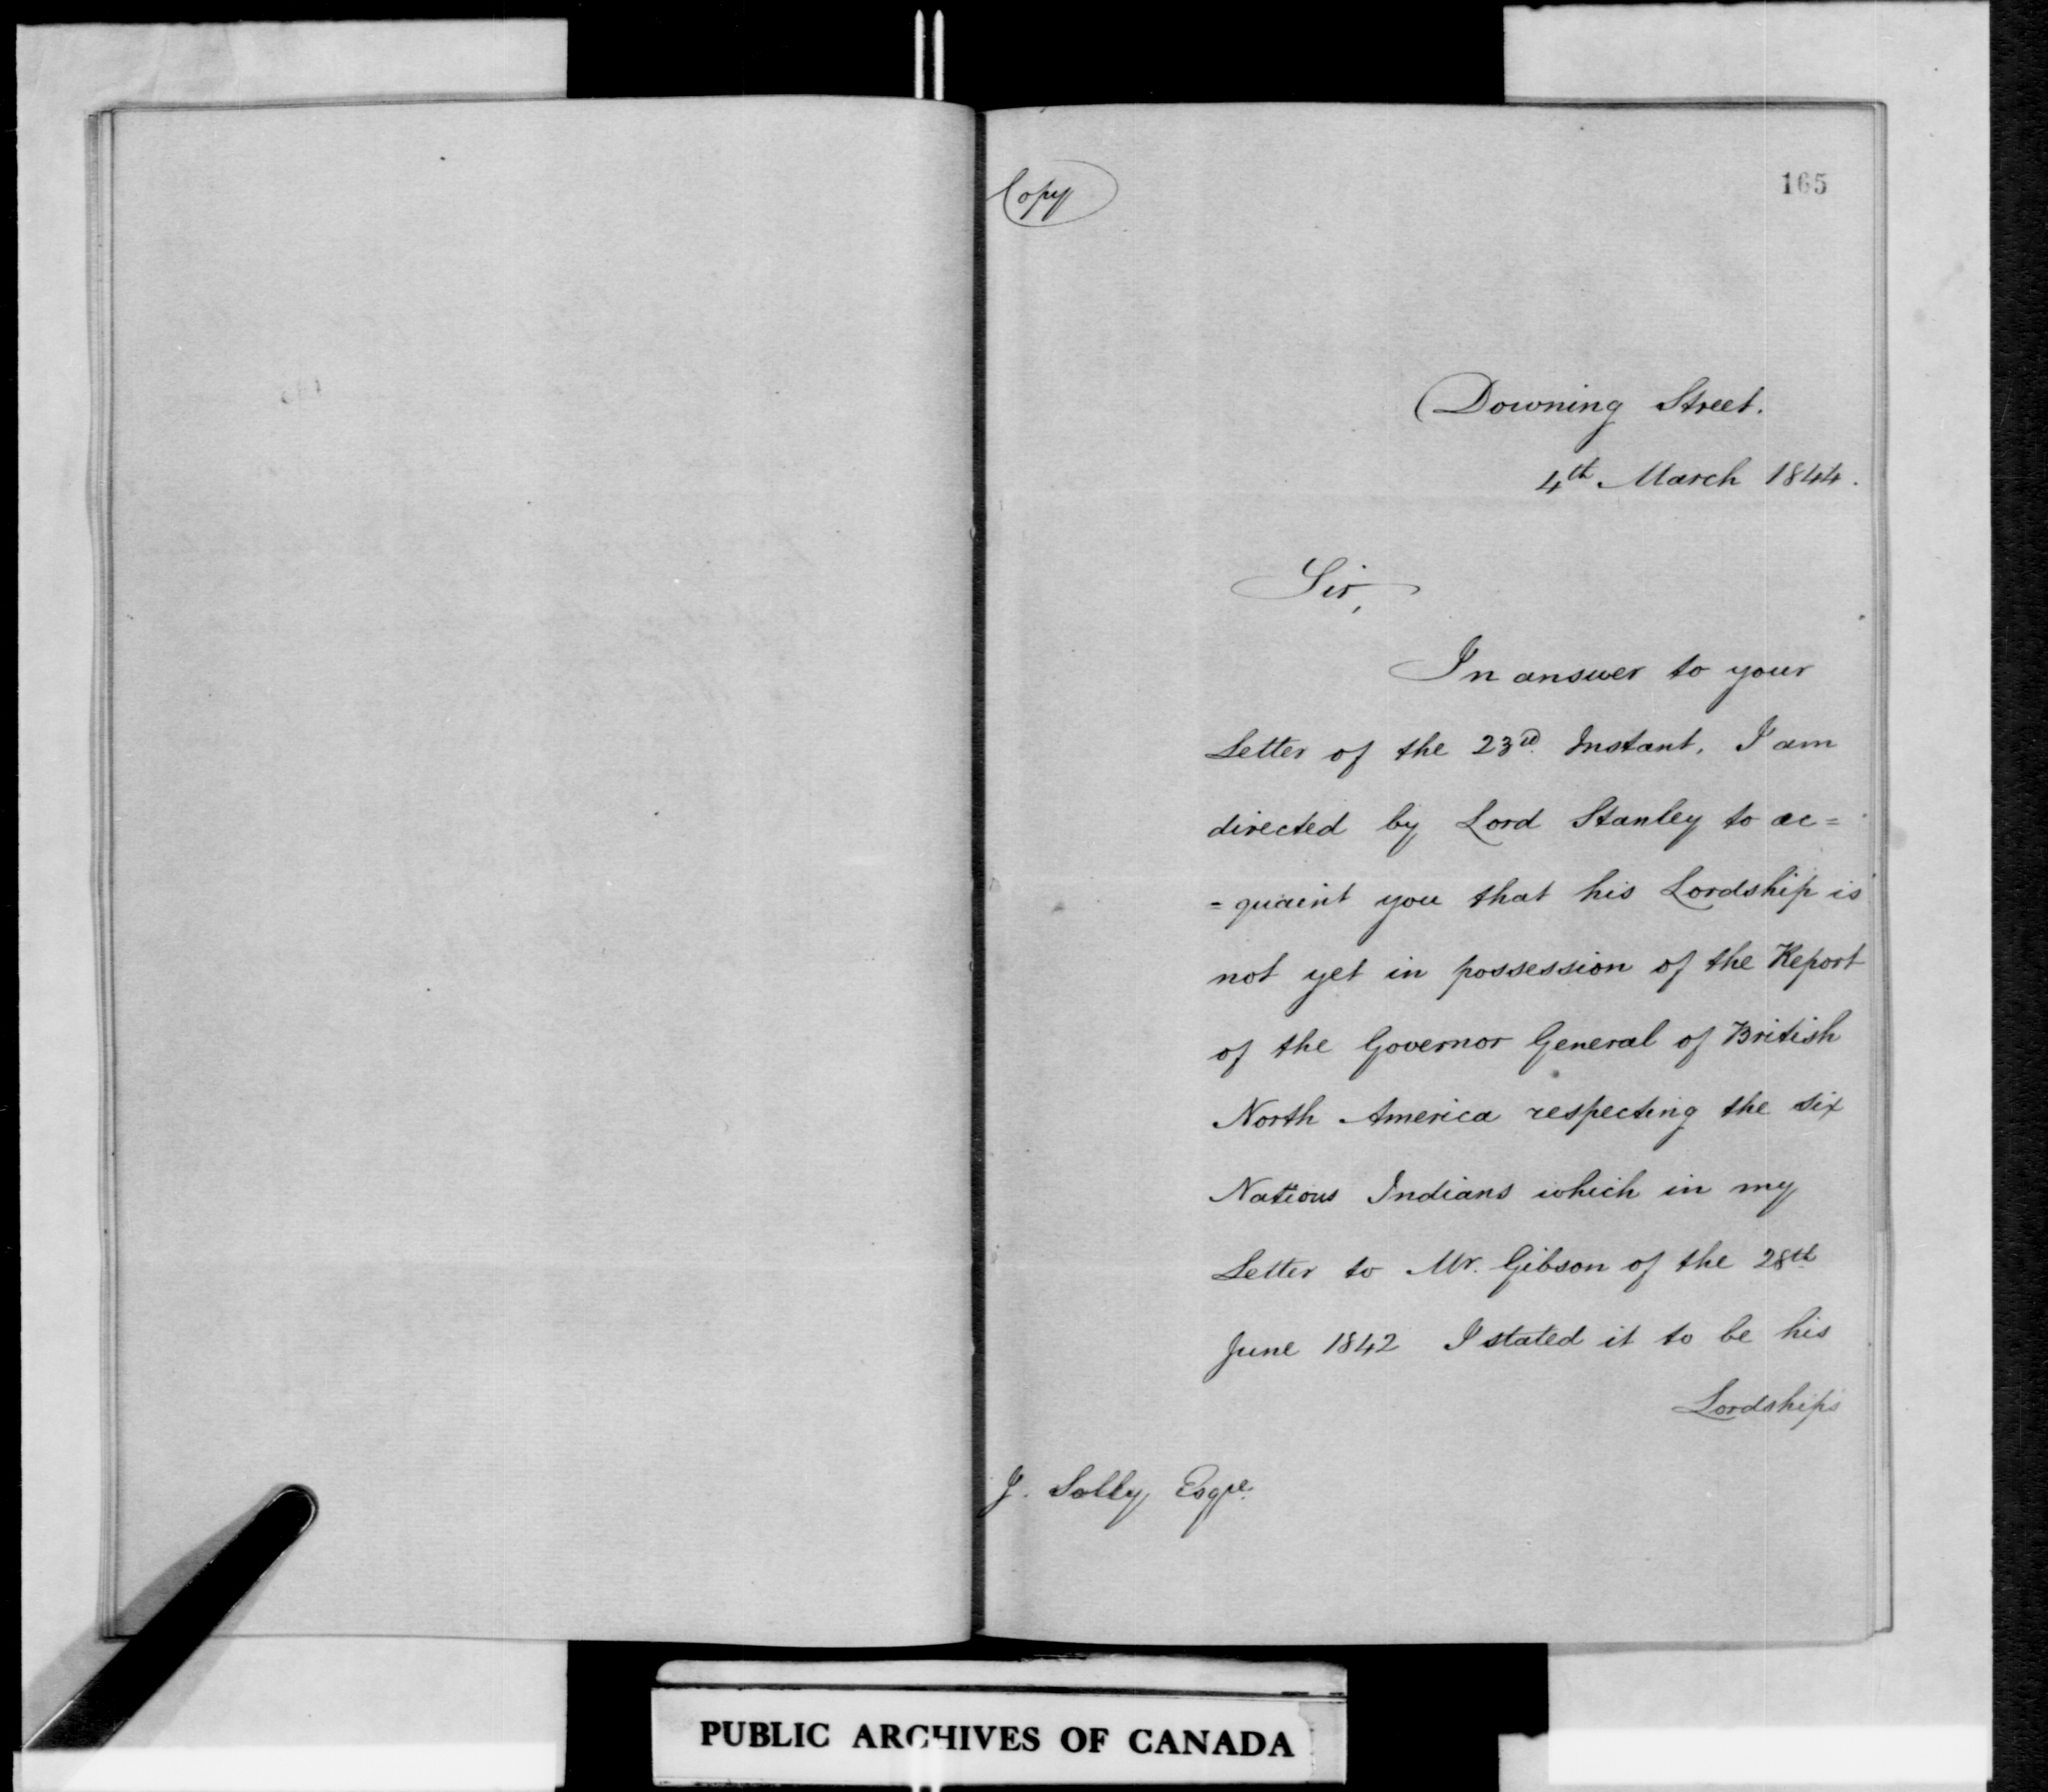 Copy
165
Downing Street.
4th March 1844.
Sir,
In answer to your
Letter of the 23rd Instant, I am
directed by Lord Stanley to ac=
=quaint you that his Lordship is
not yet in possession of the Report
of the Governor General of British
North America respecting the six
Nations Indians which in my
Letter to Mr. Gibson of the 28th
June 1842 I stated it to be his
Lordship's
J. Solly Esqre.
PUBLIC ARCHIVES OF CANADA